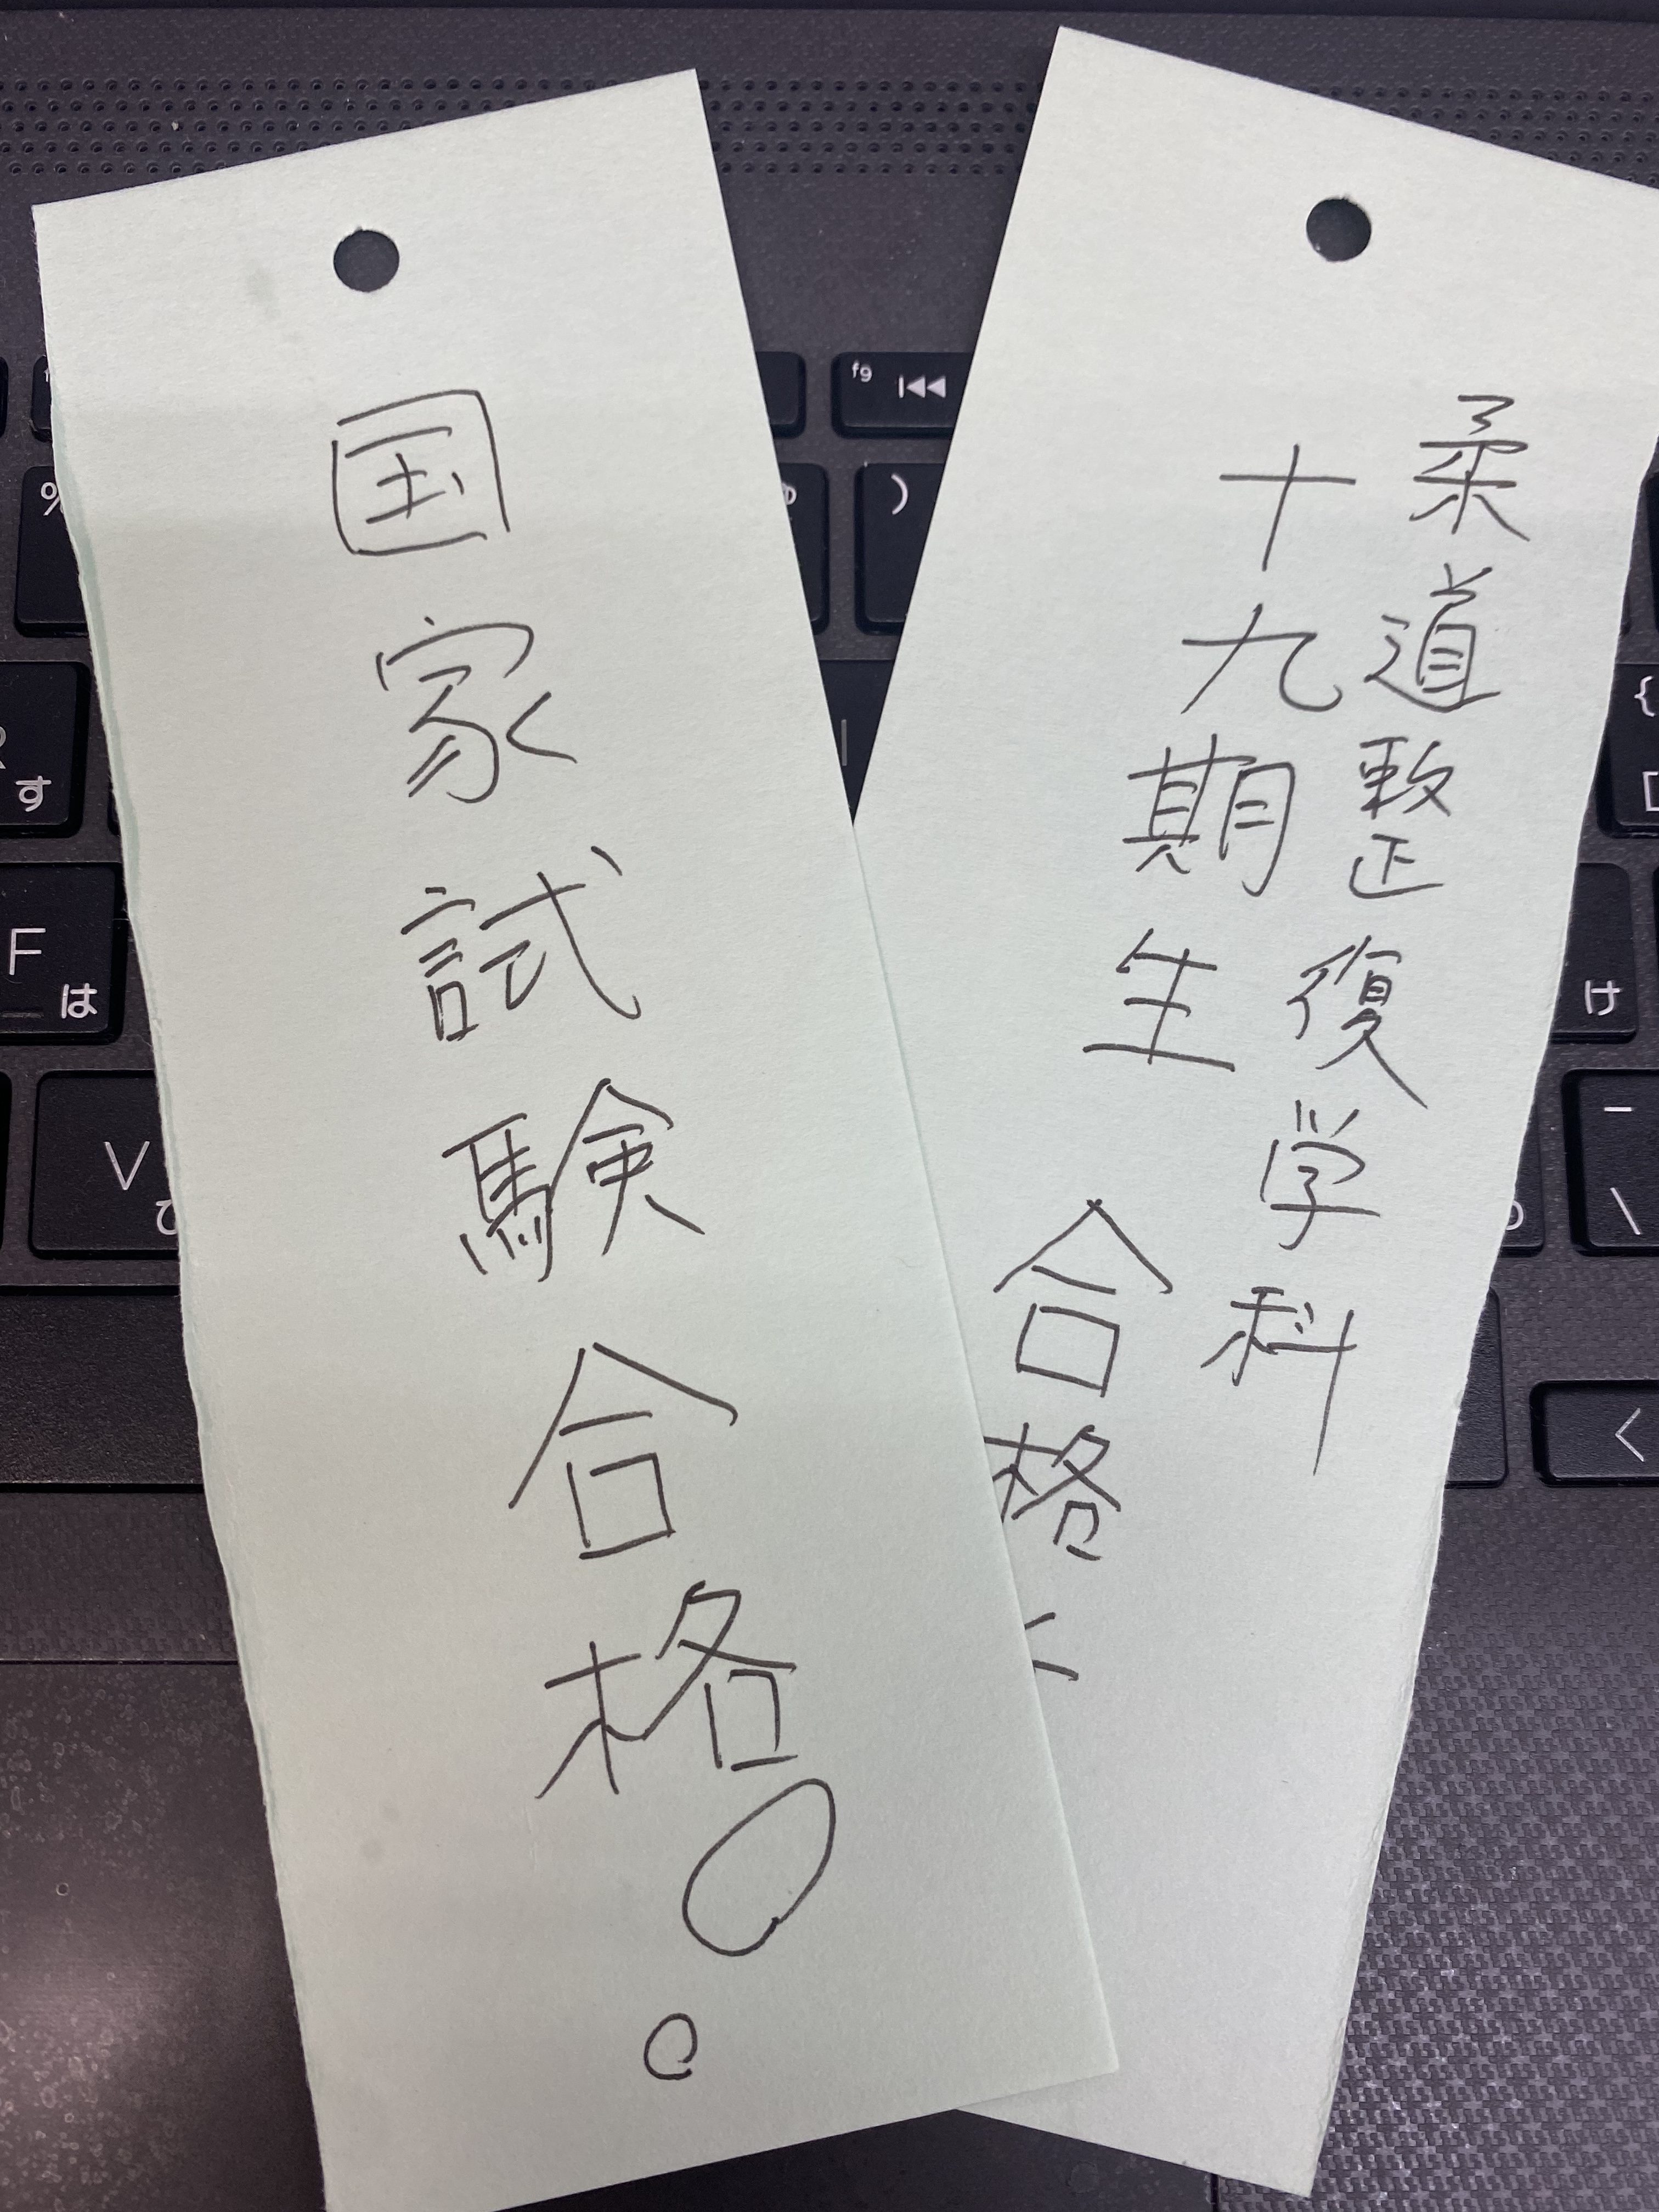 国家試験合格!
柔道整復学科
十九期生 合格
f9
)
す
F
は
V
け
{
[
-
\
<
%